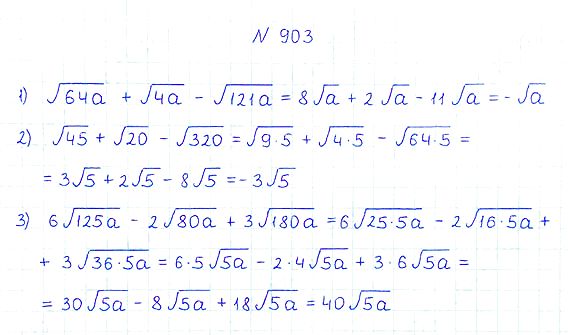 N 903
1) √64a + √4a - √121a = 8√a + 2√a - 11√a = -√a
2) √45 + √20 - √320 = √9·5 + √4·5 - √64·5 =
= 3√5 + 2√5 - 8√5 = -3√5
3) 6√125a - 2√80a + 3√180a = 6√25·5a - 2√16·5a +
+ 3√36·5a = 6·5√5a - 2·4√5a + 3·6√5a =
= 30√5a - 8√5a + 18√5a = 40√5a